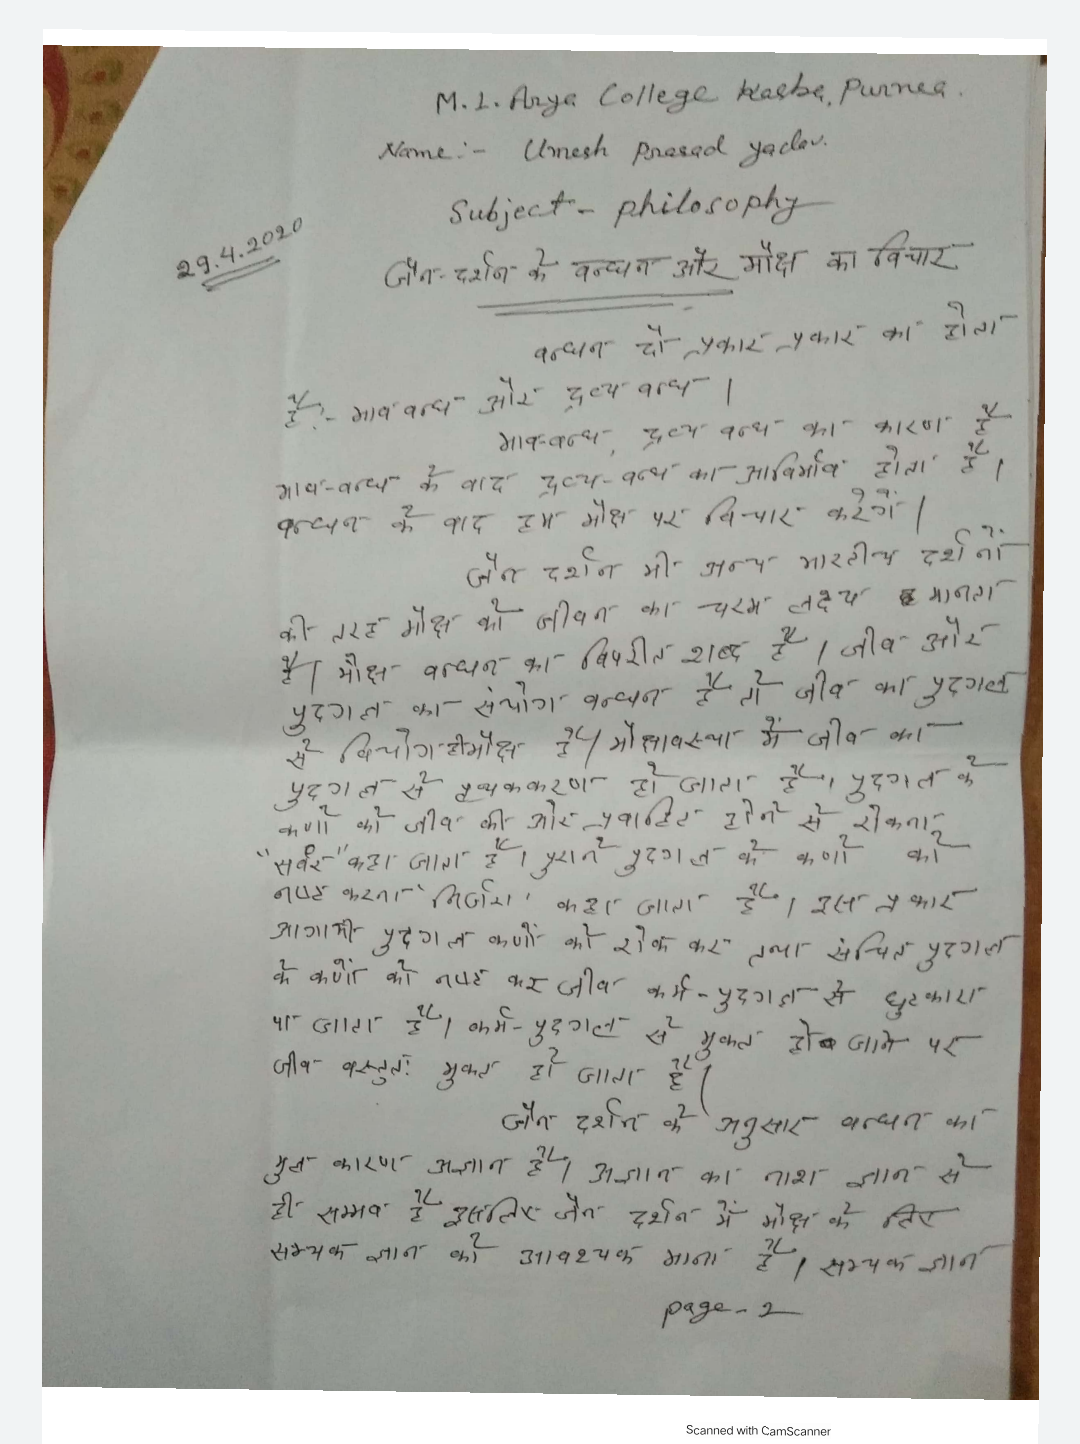 M. L. Arya College Kasba, Purnea.
Name:- Umesh Prasad yadav.
Subject- philosophy
29.4.2020
जैन-दर्शन के बन्धन और मोक्ष का विचार
बन्धन दो प्रकार प्रकार का होता
है:- भाव बन्ध और द्रव्य बन्ध।
भाव-बन्ध, द्रव्य बन्ध का कारण है
भाव-बन्ध के बाद द्रव्य-बन्ध का आविर्भाव होता है।
बन्धन के बाद हम मोक्ष पर विचार करेगें।
जैन दर्शन भी अन्य भारतीय दर्शनों
की तरह मोक्ष को जीवन का चरम लक्ष्य मानता
है। मोक्ष बन्धन का विपरीत शब्द है। जीव और
पुदगल का संयोग बन्धन है तो जीव का पुदगल
से वियोग ही मोक्ष है। मोक्षावस्था में जीव का
पुदगल से पृथककरण हो जाता है। पुदगल के
कणों को जीव की ओर प्रवाहित होने से रोकना
"सवंर" कहा जाता है। पुराने पुदगल के कणों को
नष्ट करना 'निर्जरा' कहा जाता है। इस प्रकार
आगामी पुदगल कणों को रोक कर तथा संचित पुदगल
के कणों को नष्ट कर जीव कर्म-पुदगल से छुटकारा
पा जाता है। कर्म-पुदगल से मुक्त हो जाने पर
जीव वस्तुतः मुक्त हो जाता है।
जैन दर्शन के अनुसार बन्धन का
मुल कारण अज्ञान है। अज्ञान का नाश ज्ञान से
ही सम्भव है इसलिए जैन दर्शन में मोक्ष के लिए
सम्यक ज्ञान को आवश्यक माना है। सम्यक ज्ञान
page-2
Scanned with CamScanner